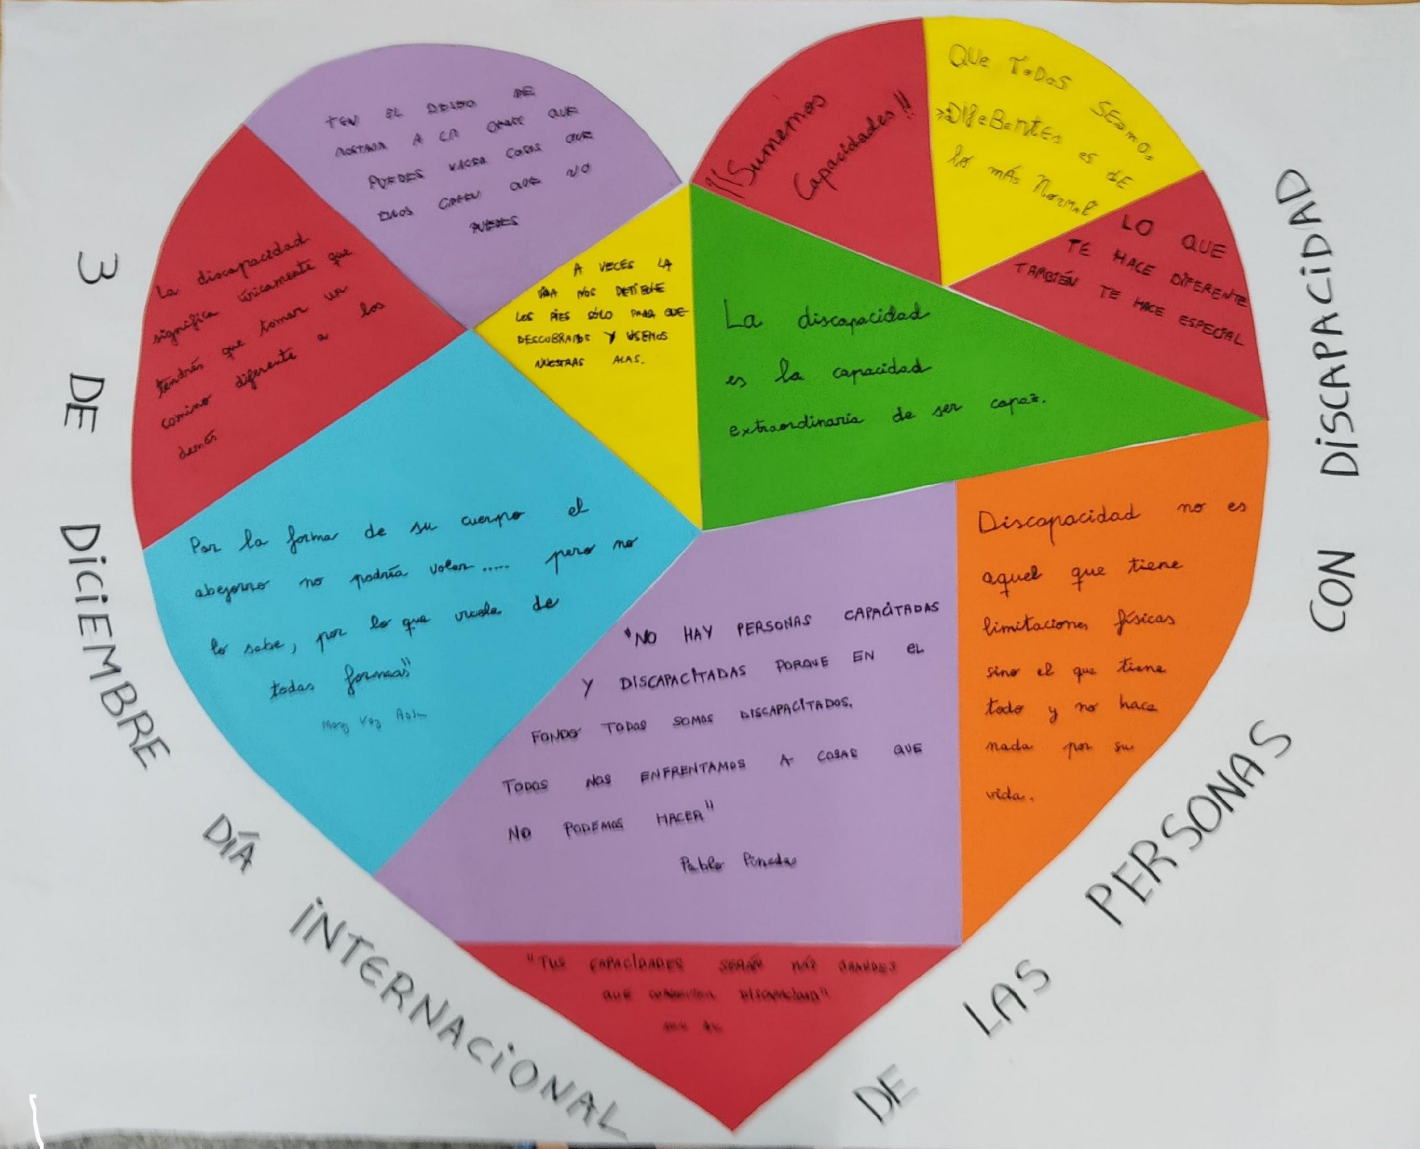 3 DE DICIEMBRE DÍA INTERNACIONAL DE LAS PERSONAS CON DISCAPACIDAD
TEN EL DESEO DE
MOSTRAR A LA GENTE QUE
PUEDES HACER COSAS QUE
ELLOS CREEN QUE NO
PUEDES
¡¡Sumemos
Capacidades!!
QUE TODOS SEAMOS
DIFERENTES ES DE
lo MÁS NORMAL
LO QUE
TE HACE DIFERENTE
TAMBIÉN TE HACE ESPECIAL
La discapacidad
significa únicamente que
tendrás que tomar un
camino diferente a los
demás
A VECES LA
VIDA NOS
LOS PIES SÓLO PARA QUE
DESCUBRAMOS Y USEMOS
NUESTRAS ALAS.
La discapacidad
es la capacidad
extraordinaria de ser capaz.
Por la forma de su cuerpo el
abejorro no podría volar..... pero no
lo sabe, por lo que vuela de
todas formas"
Mary Kay Ash
"NO HAY PERSONAS CAPACITADAS
Y DISCAPACITADAS PORQUE EN EL
FONDO TODOS SOMOS DISCAPACITADOS.
TODOS NOS ENFRENTAMOS A COSAS QUE
NO PODEMOS HACER"
Pablo Pineda
Discapacidad no es
aquel que tiene
limitaciones físicas
sino el que tiene
todo y no hace
nada por su
vida.
"TUS CAPACIDADES SERÁN MÁS GRANDES
QUE CUALQUIER DISCAPACIDAD"